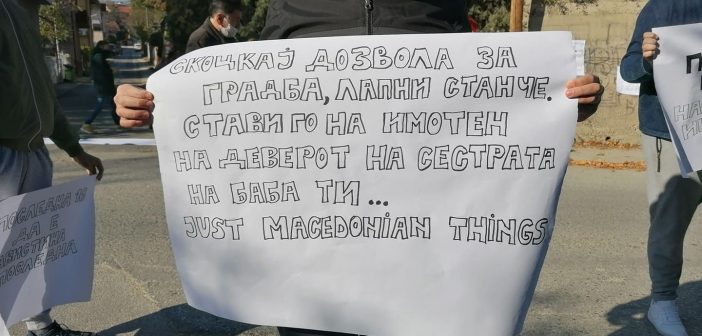 СКОЦКАЈ ДОЗВОЛА ЗА
ГРАДБА, ЛАПНИ СТАНЧЕ.
СТАВИ ГО НА ИМОТЕН
НА ДЕВЕРОТ НА СЕСТРАТА
НА БАБА ТИ...
JUST MACEDONIAN THINGS
ДА Е
НА